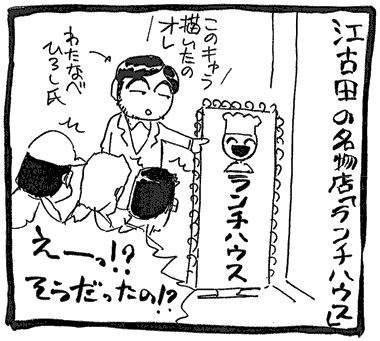 江古田の名物店「ランチハウス」
このキャラ
描いたの
オレ
わたなべ
ひろし氏
ランチハウス
えーっ!?
そうだったの!?